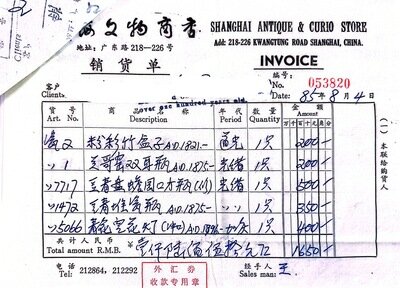 文物商店 SHANGHAI ANTIQUE & CURIO STORE
地址: 广东路 218—226号 Add: 218-226 KWANGTUNG ROAD SHANGHAI, CHINA.
销货单 INVOICE
编号:
No. 053820
客户
Clients
Date: 85年8月4日
over one hundred years old.
货号 商品名称 年代 数量 金额
Art. No. Description Period Quantity Amount
2 粉彩竹盒子 A.D.1821- 道光 1只 200-
1 哥窑双耳瓶 A.D.1875- 光绪 1只 200-
7717 口方瓶 光绪 1只 500-
1472 瓶 A.D.1875- 〃 〃 1只 350-
5066 青花 A.D.1875- 1只 400-
共计人民币
Total amount R.M.B. 壹仟陆佰伍拾元 1650-
电话
Tel: 212864, 212292
外汇券
收款专用章
经手人
Sales man: 王
(一)本联给购货人